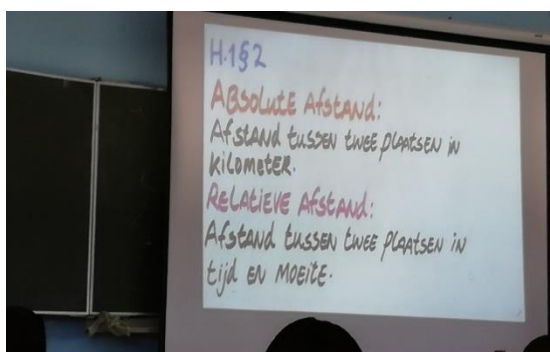 H.1§2
ABSOLUTE AFSTAND:
AFSTAND tUSSEN tWEE PLAATSEN iN
KiLOMETER.
RELATIEVE AFSTAND:
AFSTAND tUSSEN tWEE PLAATSEN iN
tijd EN MOEITE.